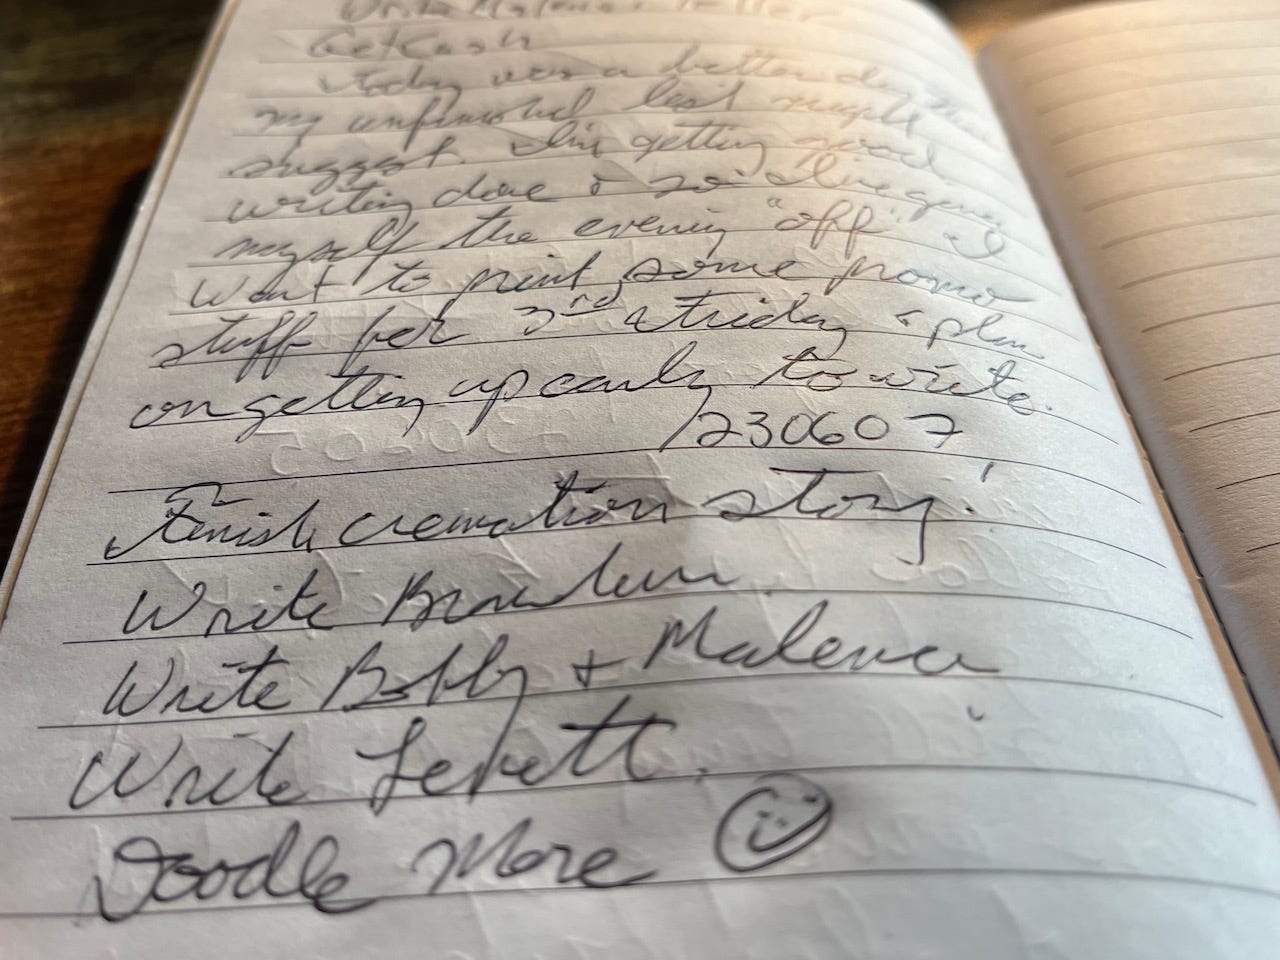 Write Malena letter
Get Cash
Today was a better day than
my unfinished list might
suggest. I'm getting good
writing done & so I've given
myself the evening "off". I
want to print some promo
stuff for 3rd Friday & plan
on getting up early to write.
230607
Finish cremation story!
Write
Write Bobby & Malena
Write Levett.
Doodle More